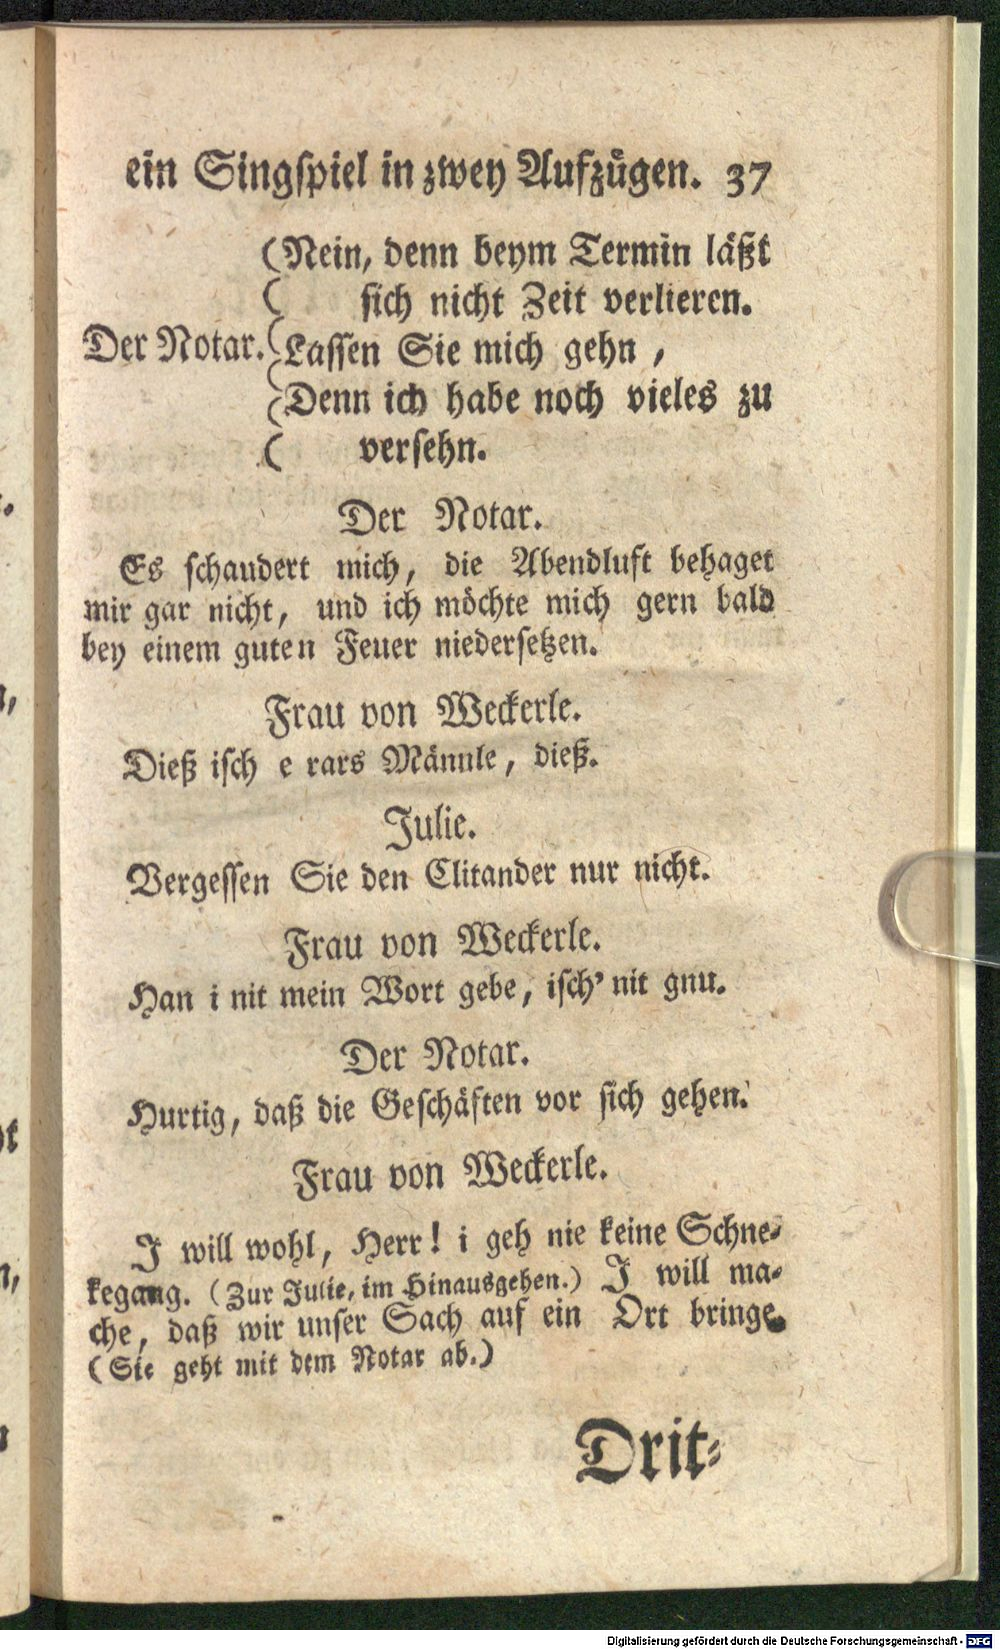 ein Singspiel in zwey Aufzügen. 37
(Nein, denn beym Termin läßt
( sich nicht Zeit verlieren.
Der Notar. (Lassen Sie mich gehn,
(Denn ich habe noch vieles zu
( versehn.
Der Notar.
Es schaudert mich, die Abendluft behaget
mir gar nicht, und ich möchte mich gern bald
bey einem guten Feuer niedersetzen.
Frau von Weckerle.
Dieß isch e rars Männle, dieß.
Julie.
Vergessen Sie den Clitander nur nicht.
Frau von Weckerle.
Han i nit mein Wort gebe, isch' nit gnu.
Der Notar.
Hurtig, daß die Geschäften vor sich gehen.
Frau von Weckerle.
I will wohl, Herr! i geh nie keine Schne-
kegang. (Zur Julie, im Hinausgehen.) I will ma-
che, daß wir unser Sach auf ein Ort bringe.
(Sie geht mit dem Notar ab.)
Drit-
Digitalisierung gefördert durch die Deutsche Forschungsgemeinschaft - DFG